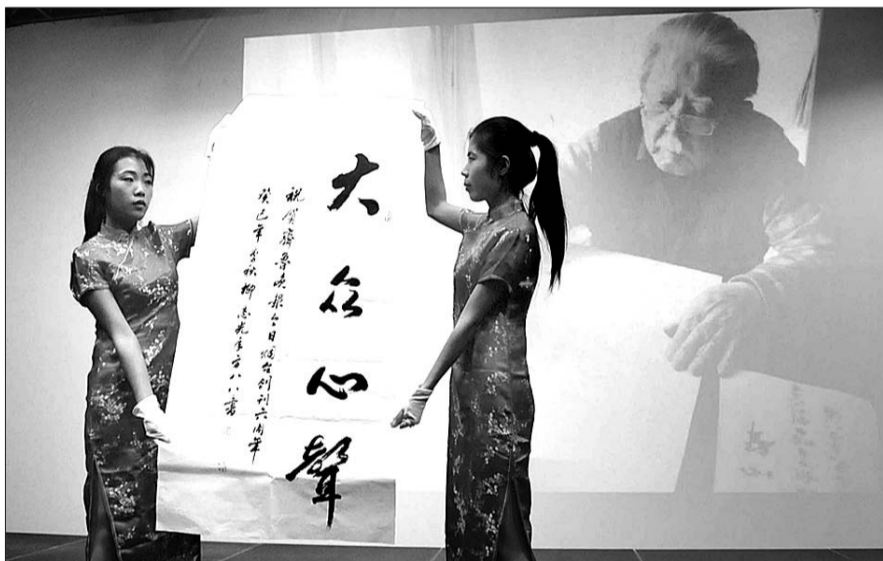 大众心聲
祝贺齊鲁晚报今日烟台创刊六周年
癸巳年金秋柳志光年方八八書